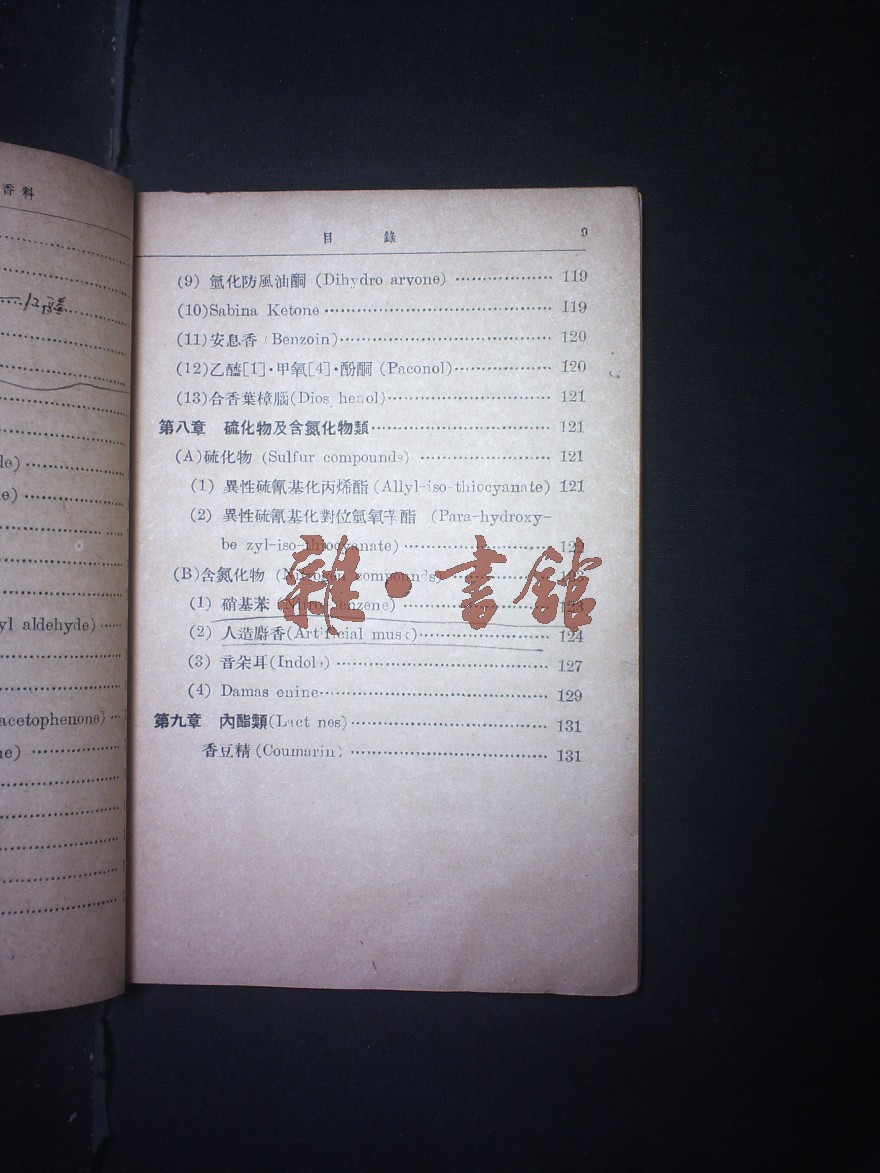 香料
12醛
de)
e)
yl aldehyde)
acetophenone)
ne)
目 錄 9
(9) 氫化防風油酮 (Dihydro arvone) 119
(10)Sabina Ketone 119
(11)安息香 (Benzoin) 120
(12)乙醯[1]·甲氧[4]·酚酮 (Paconol) 120
(13)合香葉樟腦(Dios henol) 121
第八章 硫化物及含氮化物類 121
(A)硫化物 (Sulfur compounds) 121
(1) 異性硫氰基化丙烯酯 (Allyl-iso-thiocyanate) 121
(2) 異性硫氰基化對位氫氧苄酯 (Para-hydroxy-
be zyl-iso-thiocyanate) 122
(B)含氮化物 (Nitrogen compounds)
(1) 硝基苯 (Nitrobenzene) 123
(2) 人造麝香(Artificial musk) 124
(3) 音朶耳(Indol) 127
(4) Damas enine 129
第九章 內酯類(Lact nes) 131
香豆精 (Coumarin) 131
雜·書館